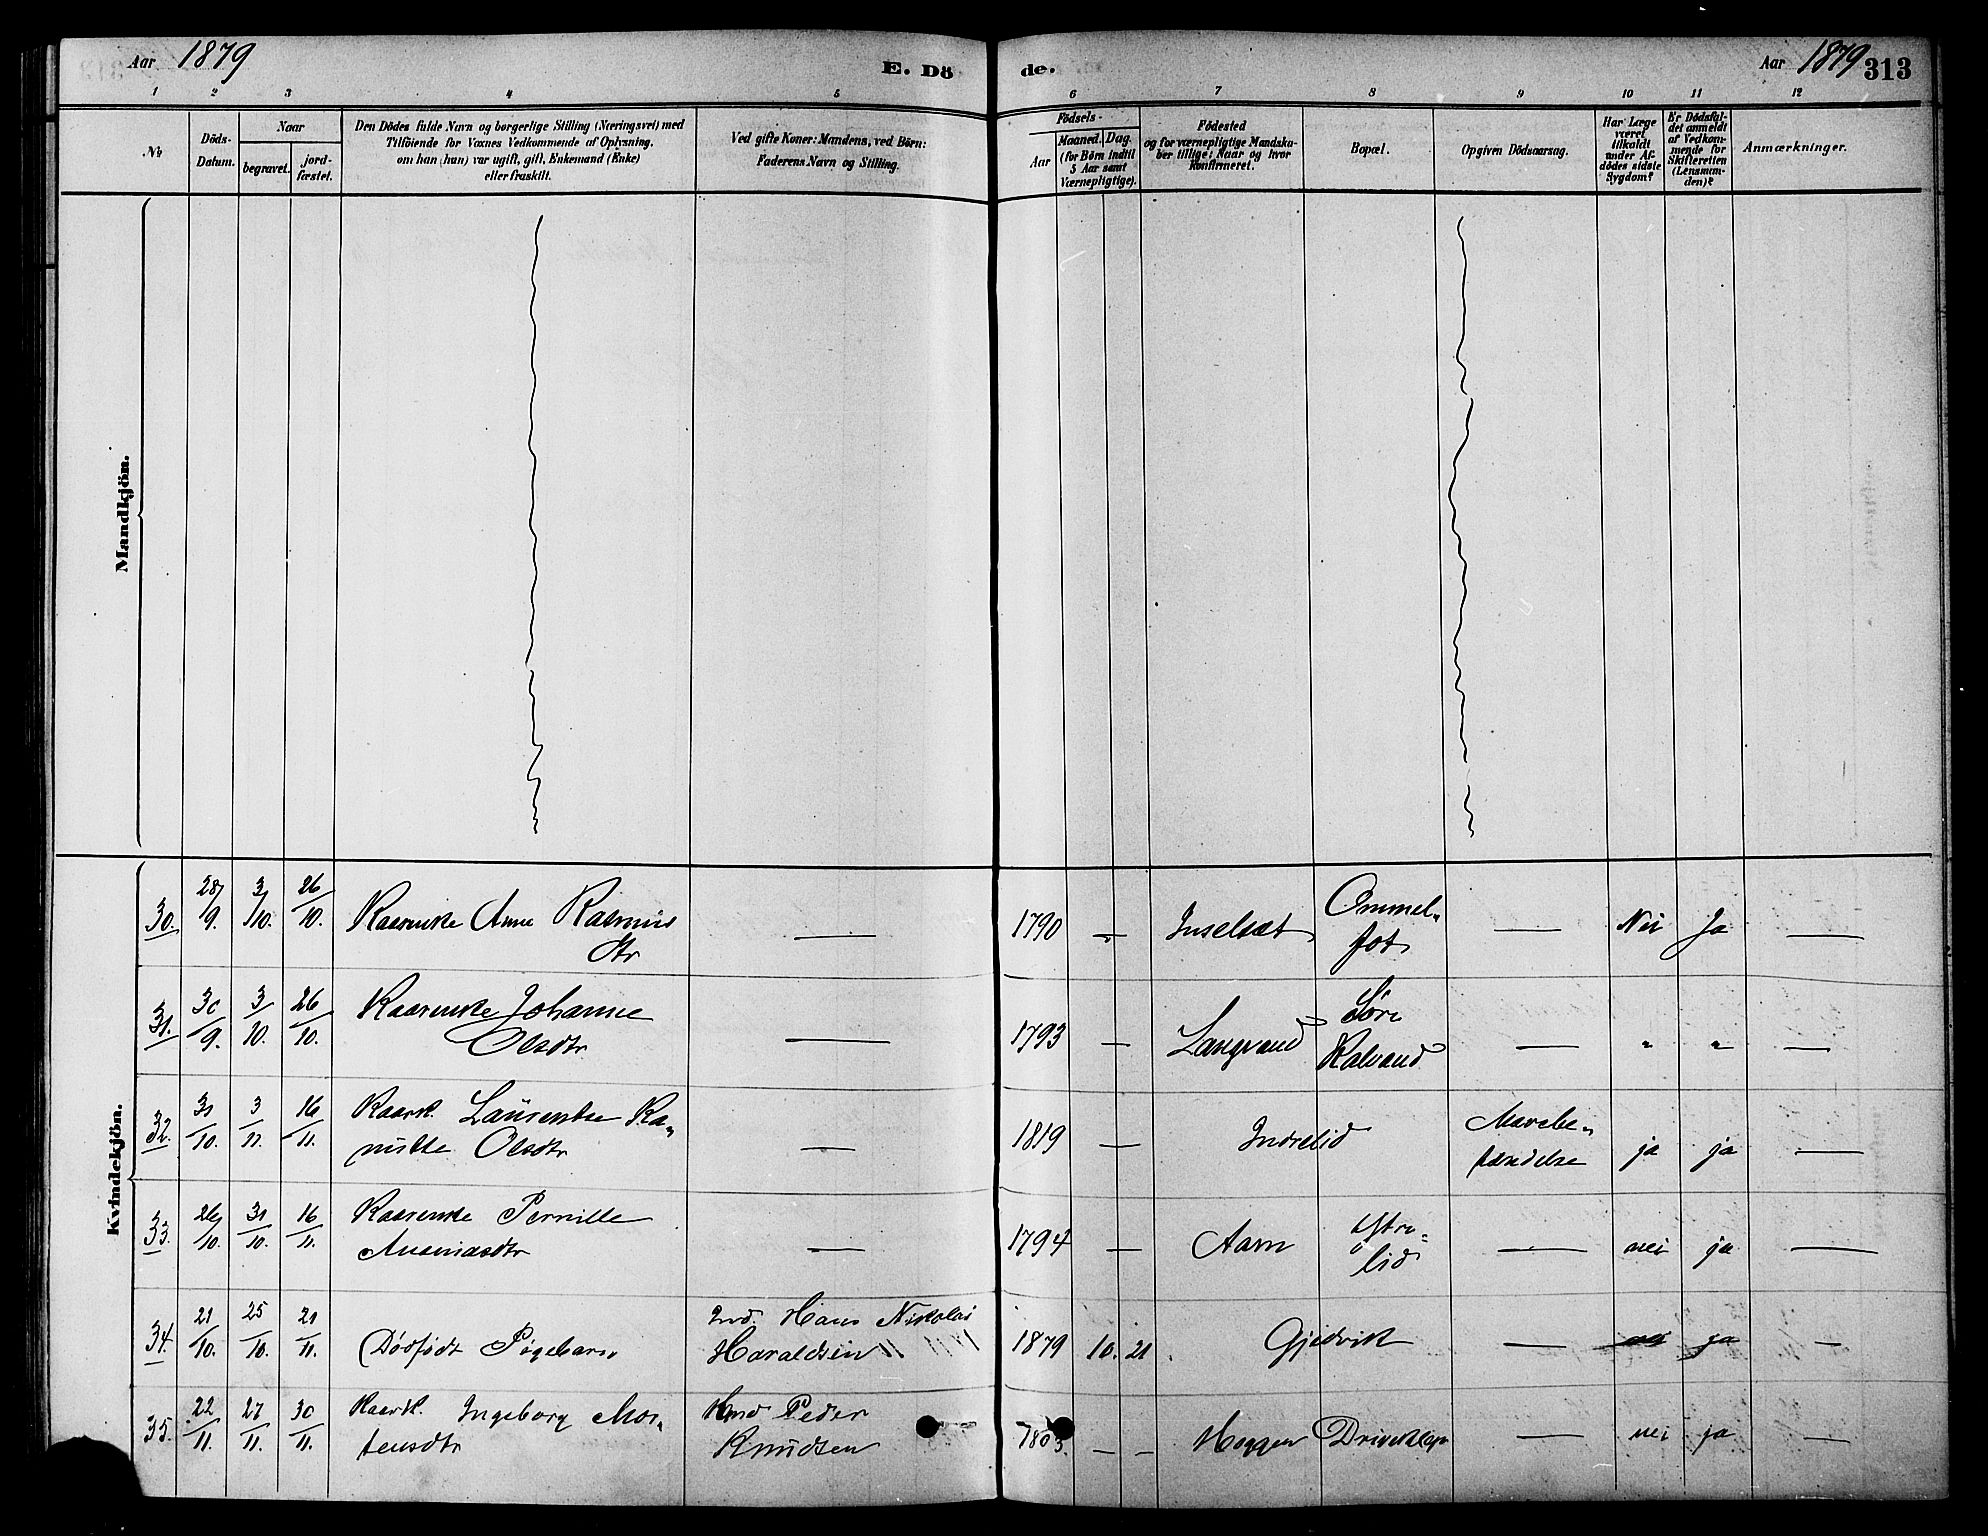 Aar 1879
E. Dö
de.
Aar 1879 313
1 2 3 4 5 6 7 8 9 10 11 12
No
Döds-
Datum.
Naar
begravet.
jord-
fæstet.
Den Dödes fulde Navn og borgerlige Stilling (Næringsvei) med
Tilföiende for Voxnes Vedkommende af Oplysning,
om han (hun) var ugift, gift, Enkemand (Enke)
eller fraskilt.
Ved gifte Koner: Mandens, ved Börn:
Faderens Navn og Stilling.
Födsels-
Aar
Maaned. Dag.
(for Börn indtil
5 Aar samt
Værnepligtige).
Födested
og for værnepligtige Mandska-
ber tillige: Naar og hvor
Konfirmeret.
Bopæl.
Opgiven Dödsaarsag.
Har Læge
været
tilkaldt
under Af-
dödes sidste
Sygdom?
Er Dödsfal-
det anmeldt
af Vedkom-
mende for
Skifteretten
(Lensman-
den)?
Anmærkninger.
Mandkjön.
Kvindekjön.
30. 28/9. 3/10. 26/10. Kaarenke Anne Rasmus
dtr — 1790 — Inselset Ommel-
fot — Nei Ja —
31. 30/9. 3/10. 26/10. Kaarenke Johanne
Olsdtr — 1793 — Langvand Søre
Kalvand — " " —
32. 31/10. 3/11. 16/11. Kaark. Laurentse Ka-
nutte Olsdtr — 1819 — Indrelid Mavebe-
tændelse ja ja —
33. 26/10. 31/10. 16/11. Kaarenke Pernille
Ananiasdtr — 1794 — Aarn Ytre-
lid — nei ja —
34. 21/10. 25/10. 21/11. Dødfødt Pigebarn Hans Nikolai
Haraldsen 1879 10. 21 Gjedvik — nei ja —
35. 22/11. 27/11. 30/11. Kaark. Ingeborg Mor-
tensdtr Kmd Peder
Knudsen 1803 — — Hoggen Driveklep — nei ja —